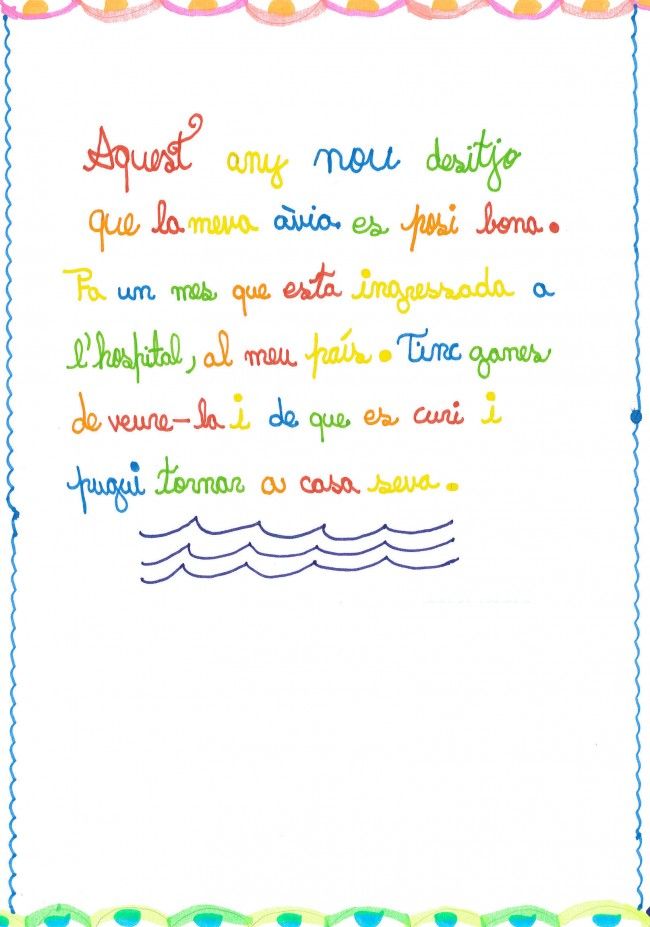 Aquest any nou desitjo
que la meva àvia es posi bona.
Fa un mes que esta ingressada a
l'hospital, al meu país. Tinc ganes
de veure-la i de que es curi i
pugui tornar a casa seva.